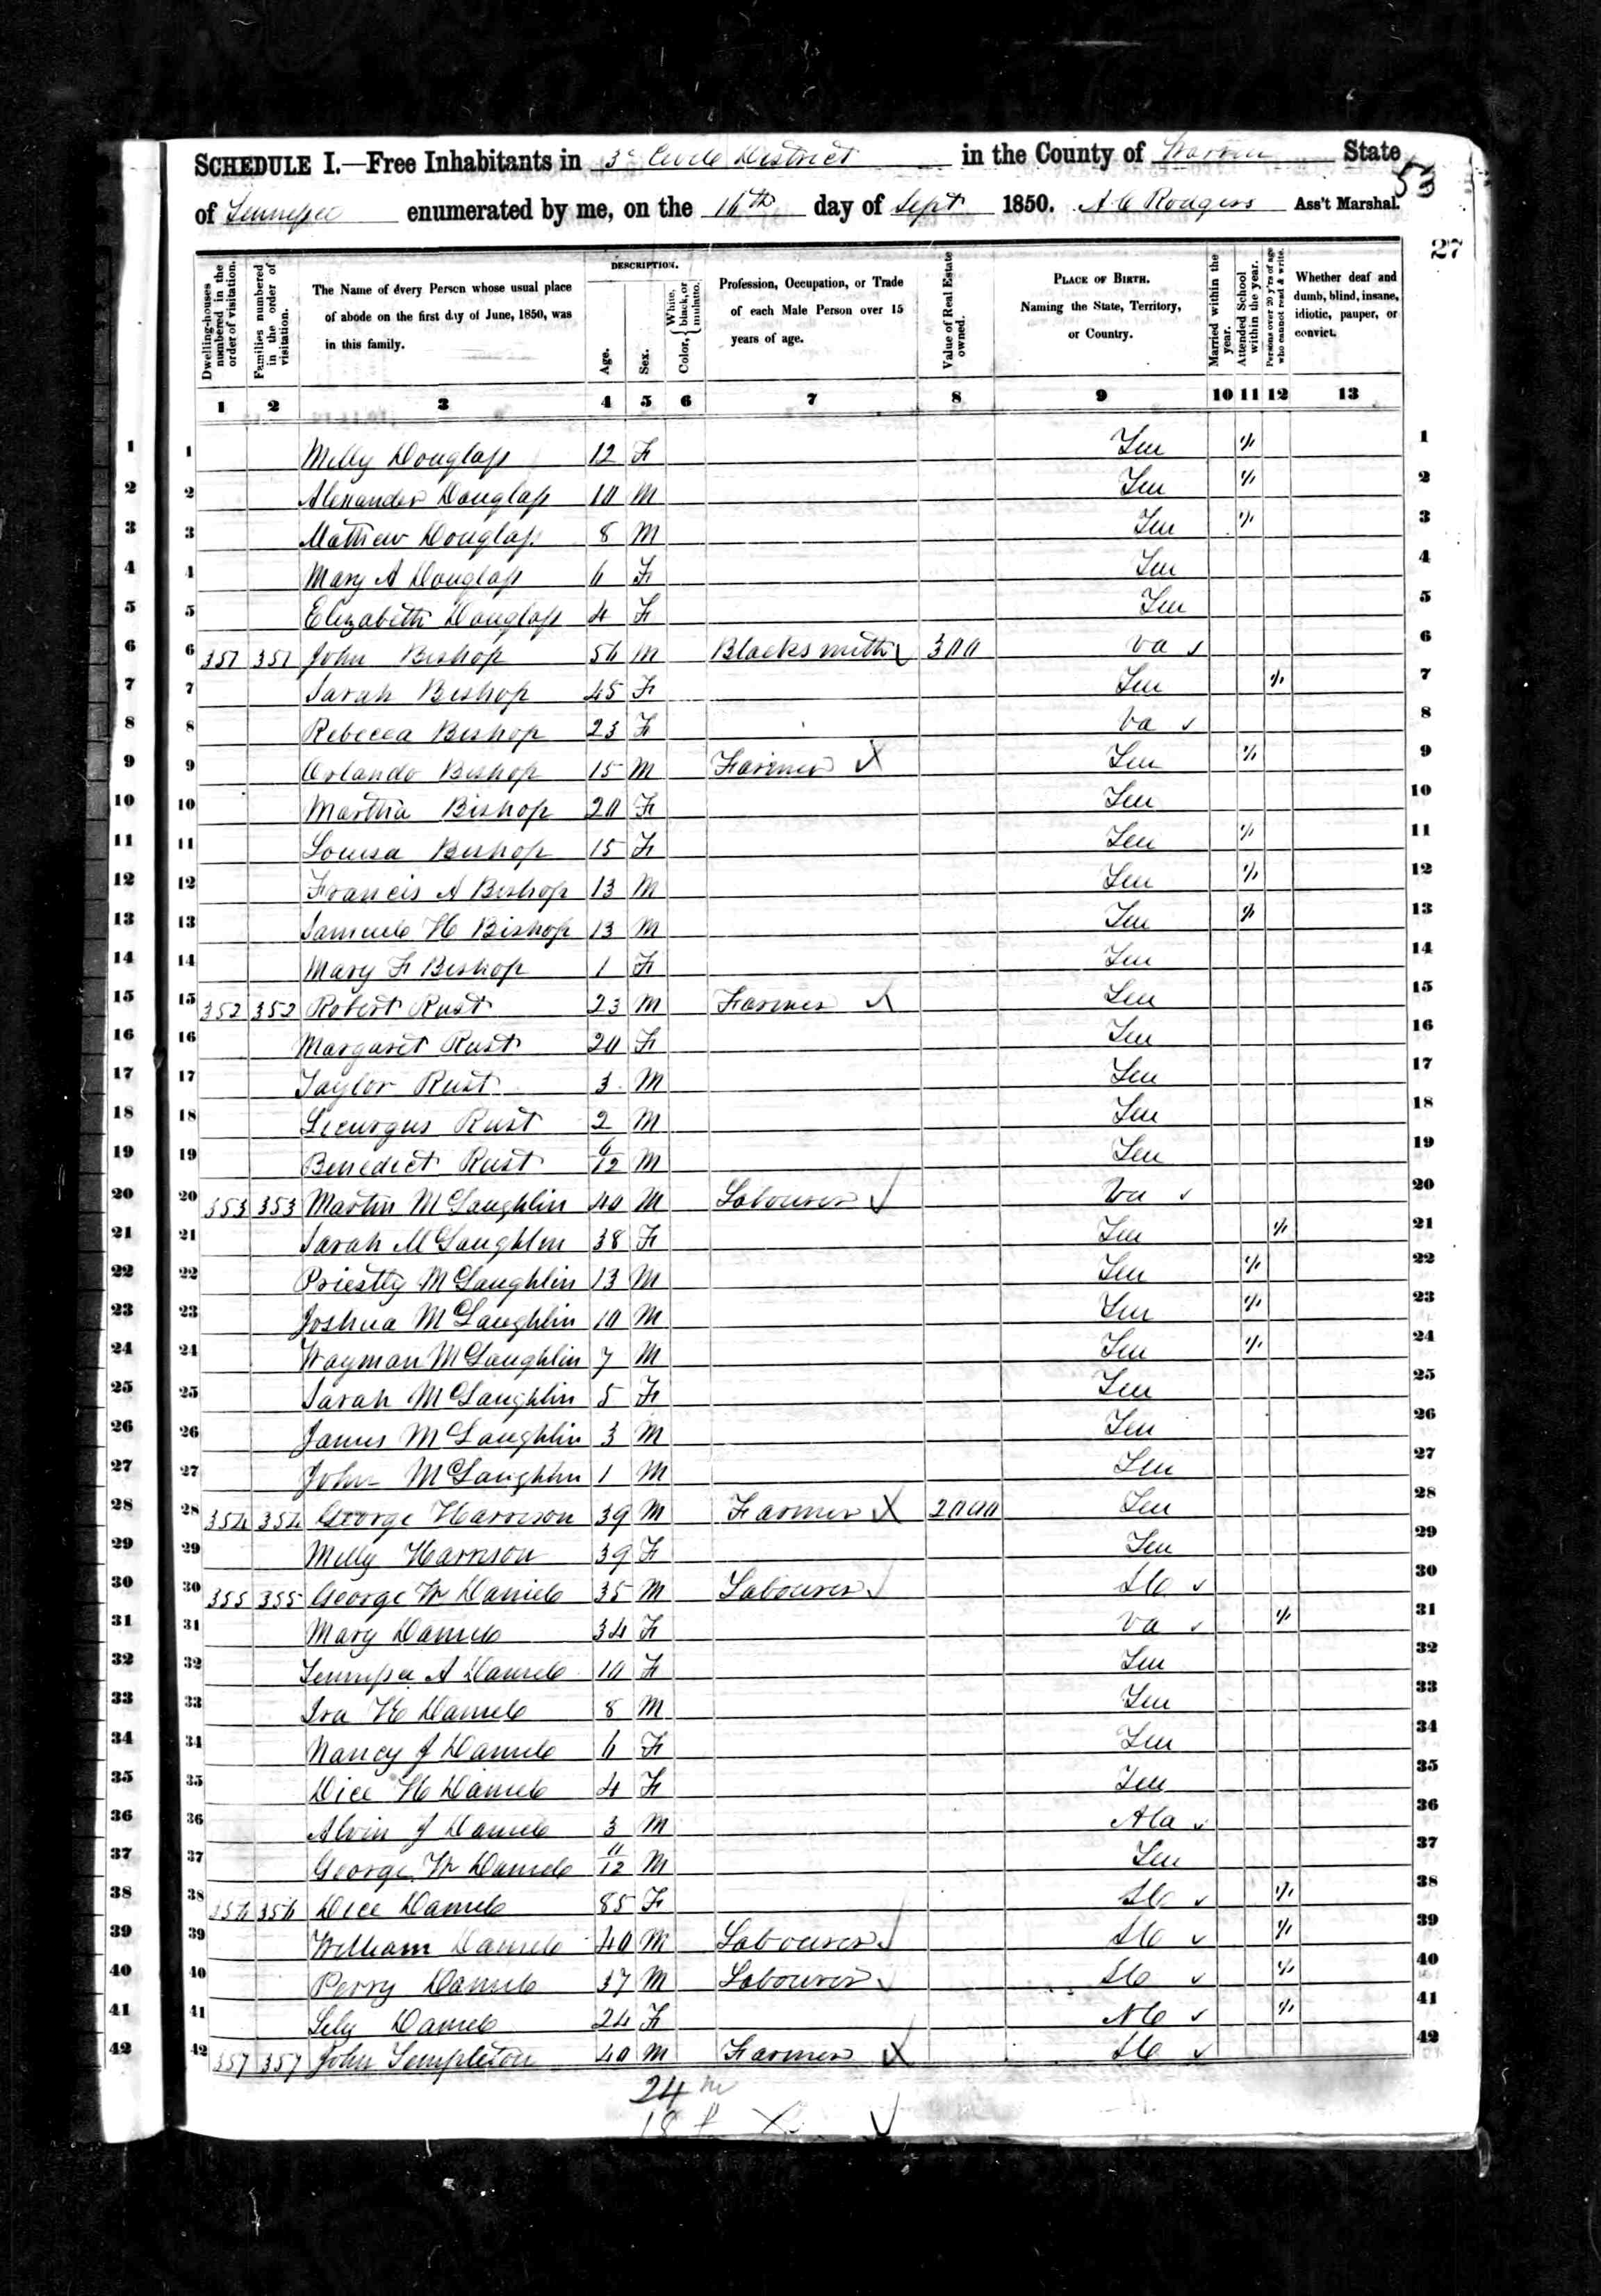 SCHEDULE I.—Free Inhabitants in 3d Civil District in the County of Warren State
53
of Tennessee enumerated by me, on the 16th day of Sept 1850. A C Rodgers Ass't Marshal.
27
Dwelling-houses numbered in the order of visitation.
Families numbered in the order of visitation.
The Name of every Person whose usual place of abode on the first day of June, 1850, was in this family.
DESCRIPTION.
Age.
Sex.
Color, { White, black, or mulatto.
Profession, Occupation, or Trade of each Male Person over 15 years of age.
Value of Real Estate owned.
PLACE OF BIRTH. Naming the State, Territory, or Country.
Married within the year.
Attended School within the year.
Persons over 20 y'rs of age who cannot read & write.
Whether deaf and dumb, blind, insane, idiotic, pauper, or convict.
1 2 3 4 5 6 7 8 9 10 11 12 13
1 1 Milly Douglass 12 F Ten 1/1 1
2 2 Alexander Douglass 10 M Ten 1/1 2
3 3 Mathew Douglass 8 M Ten 1/1 3
4 4 Mary A Douglass 6 F Ten 4
5 5 Elizabeth Douglass 4 F Ten 5
6 6 351 351 John Bishop 56 M Blacksmith 300 Va 6
7 7 Sarah Bishop 45 F Ten 1/1 7
8 8 Rebecca Bishop 23 F Va 8
9 9 Orlando Bishop 15 M Farmer X Ten 1/1 9
10 10 Martha Bishop 20 F Ten 10
11 11 Louisa Bishop 15 F Ten 1/1 11
12 12 Francis A Bishop 13 M Ten 1/1 12
13 13 Samuel H Bishop 13 M Ten 1/1 13
14 14 Mary F Bishop 1 F Ten 14
15 15 352 352 Robert Rust 23 M Farmer X Ten 15
16 16 Margaret Rust 20 F Ten 16
17 17 Taylor Rust 3 M Ten 17
18 18 Licurgus Rust 2 M Ten 18
19 19 Benedict Rust 6/12 M Ten 19
20 20 353 353 Martin McLaughlin 40 M Labourer Va 20
21 21 Sarah McLaughlin 38 F Ten 1/1 21
22 22 Priestly McLaughlin 13 M Ten 1/1 22
23 23 Joshua McLaughlin 10 M Ten 1/1 23
24 24 Wayman McLaughlin 7 M Ten 1/1 24
25 25 Sarah McLaughlin 5 F Ten 25
26 26 James McLaughlin 3 M Ten 26
27 27 John McLaughlin 1 M Ten 27
28 28 354 354 George Harrison 39 M Farmer X 2000 Ten 28
29 29 Milly Harrison 39 F Ten 29
30 30 355 355 George W Daniel 35 M Labourer SC 30
31 31 Mary Daniel 34 F Va 1/1 31
32 32 Tennessee A Daniel 10 F Ten 32
33 33 Ira H Daniel 8 M Ten 33
34 34 Nancy J Daniel 6 F Ten 34
35 35 Dice H Daniel 4 F Ten 35
36 36 Alvin J Daniel 3 M Ala 36
37 37 George W Daniel 11/12 M Ten 37
38 38 356 356 Dice Daniel 85 F SC 1/1 38
39 39 William Daniel 40 M Labourer SC 1/1 39
40 40 Perry Daniel 37 M Labourer SC 1/1 40
41 41 Lily Daniel 24 F NC 1/1 41
42 42 357 357 John Templeton 40 M Farmer X SC 42
24 m
18 f